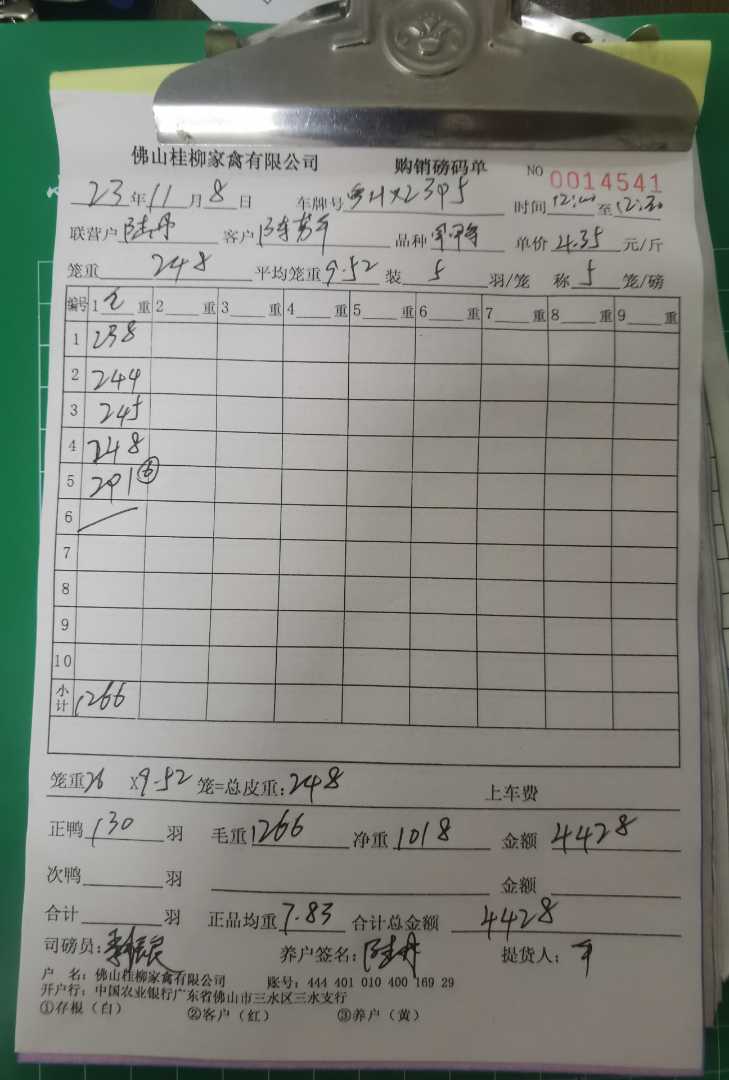 佛山桂柳家禽有限公司 购销磅码单 NO 0014541
23年11月8日 车牌号 2395 时间12:00至12:30
联营户 客户 品种 单价4.35元/斤
笼重248平均笼重9.52装5羽/笼 称5笼/磅
编号 1毛重 2重 3重 4重 5重 6重 7重 8重 9重
1 238
2 244
3 245
4 248
5 291⑥
6
7
8
9
10
小计 1266
笼重26 X9.52笼=总皮重:248 上车费
正鸭130羽 毛重1266 净重1018 金额4428
次鸭羽 金额
合计羽 正品均重7.83 合计总金额4428
司磅员: 养户签名: 提货人:
户 名:佛山桂柳家禽有限公司 账号:444 401 010 400 169 29
开户行:中国农业银行广东省佛山市三水区三水支行
①存根(白) ②客户(红) ③养户(黄)